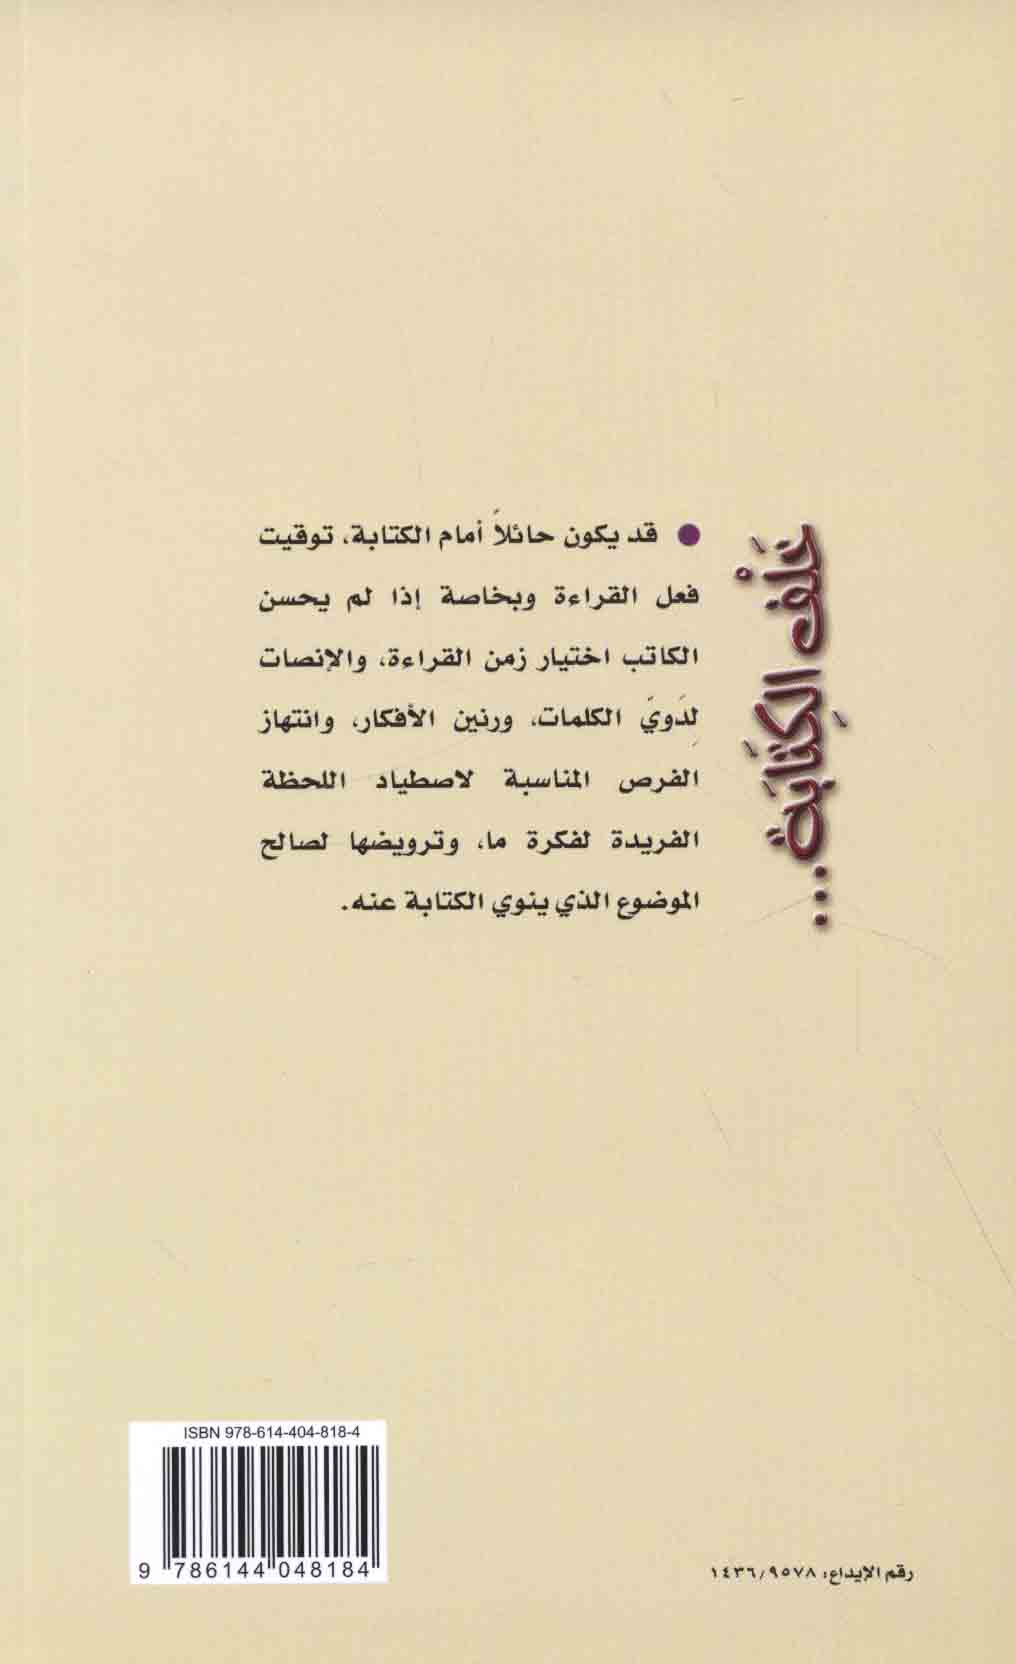 عَلْف الكِتَابَة...
● قد يكون حائلاً أمام الكتابة، توقيت
فعل القراءة وبخاصة إذا لم يحسن
الكاتب اختيار زمن القراءة، والإنصات
لدَويِّ الكلمات، ورنين الأفكار، وانتهاز
الفرص المناسبة لاصطياد اللحظة
الفريدة لفكرة ما، وترويضها لصالح
الموضوع الذي ينوي الكتابة عنه.
ISBN 978-614-404-818-4
9 786144 048184
رقم الإيداع: ١٤٣٦/٩٥٧٨